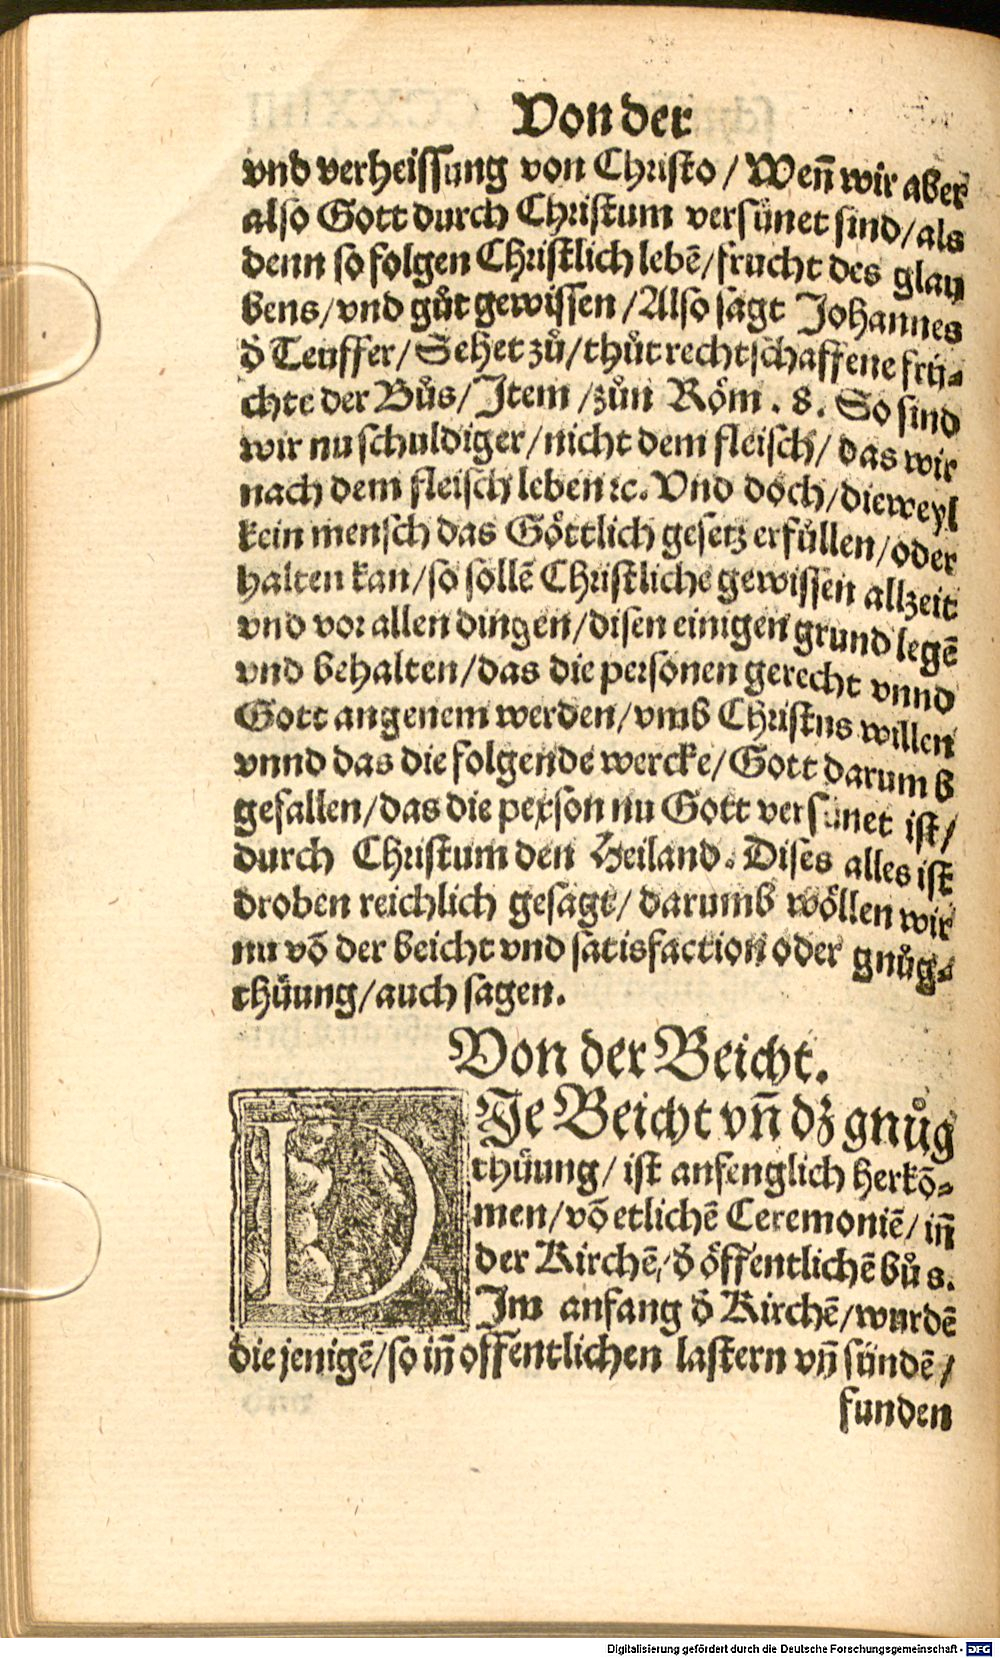 Von der
vnd verheissung von Christo / Weñ wir aber
also Gott durch Christum versünet sind / als
denn so folgen Christlich lebē / frucht des glau
bens / vnd gůt gewissen / Also sagt Johannes
ď Teuffer / Sehet zů / thůt rechtschaffene frü-
chte der Bůs / Item / zůn Röm . 8. So sind
wir nu schuldiger / nicht dem fleisch / das wir
nach dem fleisch leben ꝛc. Vnd doch / dieweyl
kein mensch das Göttlich gesetz erfüllen / oder
halten kan / so sollē Christliche gewissen allzeit
vnd vor allen dingen / disen einigen grund legē
vnd behalten / das die personen gerecht vnnd
Gott angenem werden / vmb Christus willen
vnnd das die folgende wercke / Gott darumb
gefallen / das die person nu Gott versünet ist /
durch Christum den Heiland. Dises alles ist
droben reichlich gesagt / darumb wöllen wir
nu vō der beicht vnd satisfaction oder gnůg-
thüung / auch sagen.
Von der Beicht.
DIe Beicht vñ dz gnůg
thüung / ist anfenglich herkō-
men / vō etlichē Ceremoniē / iñ
der Kirchē / ď öffentlichē bůs.
Im anfang ď Kirchē / wurdē
die jenigē / so iñ offentlichen lastern vñ sündē /
funden
Digitalisierung gefördert durch die Deutsche Forschungsgemeinschaft - DFG